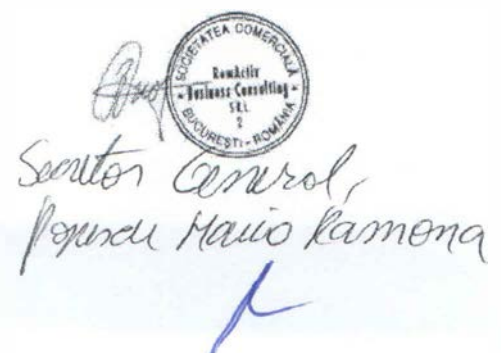 SOCIETATEA COMERCIALĂ
RomActiv
Business Consulting
SRL
2
BUCUREȘTI - ROMÂNIA
Secretar General,
Popescu Maria Ramona